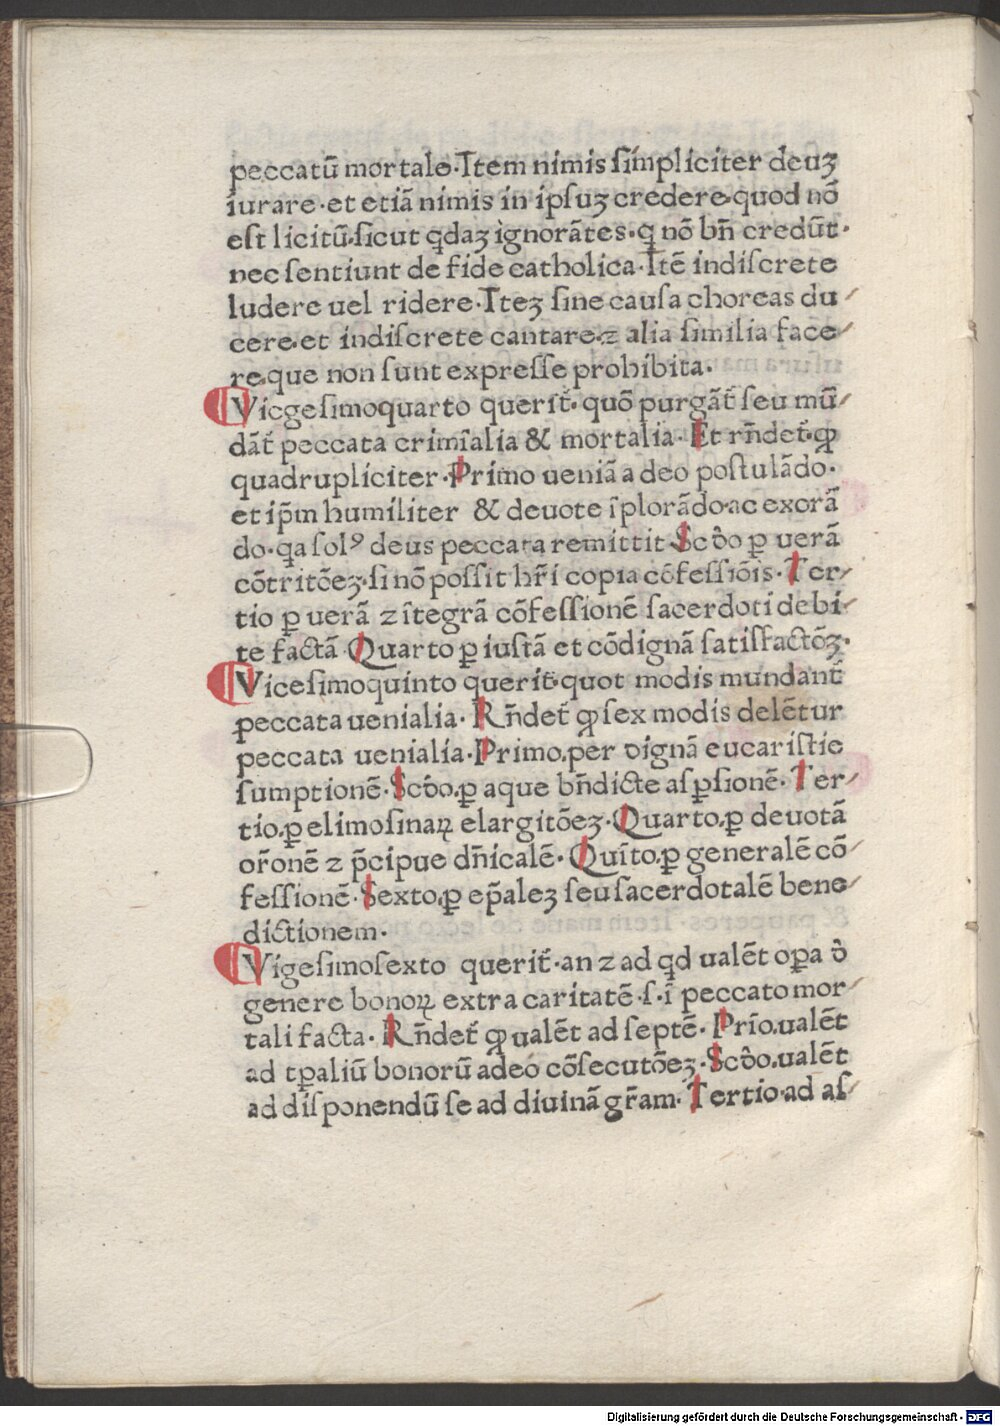 peccatū mortale·Item nimis simpliciter deuꝫ
iurare·et etiā nimis in ipsuꝫ credere·quod nō
est licitū·sicut qdaꝫ ignorātes·q nō bn̄ credūt·
nec sentiunt de fide catholica·Itē indiscrete
ludere uel ridere·Iteꝫ sine causa choreas du
cere·et indiscrete cantare·⁊ alia similia face
re·que non sunt expresse prohibita·
Vicgesimoquarto querit̄·quō purgāt̄ seu mū
dāt̄ peccata crimīalia & mortalia·Et rn̄det̄·ꝙ
quadrupliciter·Primo ueniā a deo postulādo·
et ip̄m humiliter & deuote īplorādo·ac exorā
do·qa solꝰ deus peccata remittit Scd̄o ꝑ uerā
cōtritōeꝫ·si nō possit hr̄i copia cōfessiōis·Ter
tio ꝑ uerā ⁊ ītegrā cōfessionē sacerdoti debi
te factā Quarto ꝑ iustā et cōdignā satisfactōꝫ·
Vicesimoquinto querit̄·quot modis mundant̄
peccata uenialia·Rn̄det̄ ꝙ sex modis delētur
peccata uenialia·Primo·per dignā eucaristie
sumptionē·Scd̄o·ꝑ aque bn̄dicte asꝑsionē·Ter
tio·ꝑ elimosinaꝝ elargitōeꝫ·Quarto·ꝑ deuotā
or̄onē ⁊ p̄cipue dn̄icalē·Quīto·ꝑ generalē cō
fessionē·Sexto·ꝑ ep̄aleꝫ seu sacerdotalē bene
dictionem·
Vigesimosexto querit̄·an ⁊ ad qd ualēt oꝑa d̄
genere bonoꝝ extra caritatē·s·ī peccato mor
tali facta·Rn̄det̄ ꝙ ualēt ad septē·Prīo·ualēt
ad tꝑaliū bonorū adeo cōsecutōeꝫ·Scd̄o·ualēt
ad disponendū se ad diuinā gr̄am·Tertio·ad as
Digitalisierung gefördert durch die Deutsche Forschungsgemeinschaft - DFG